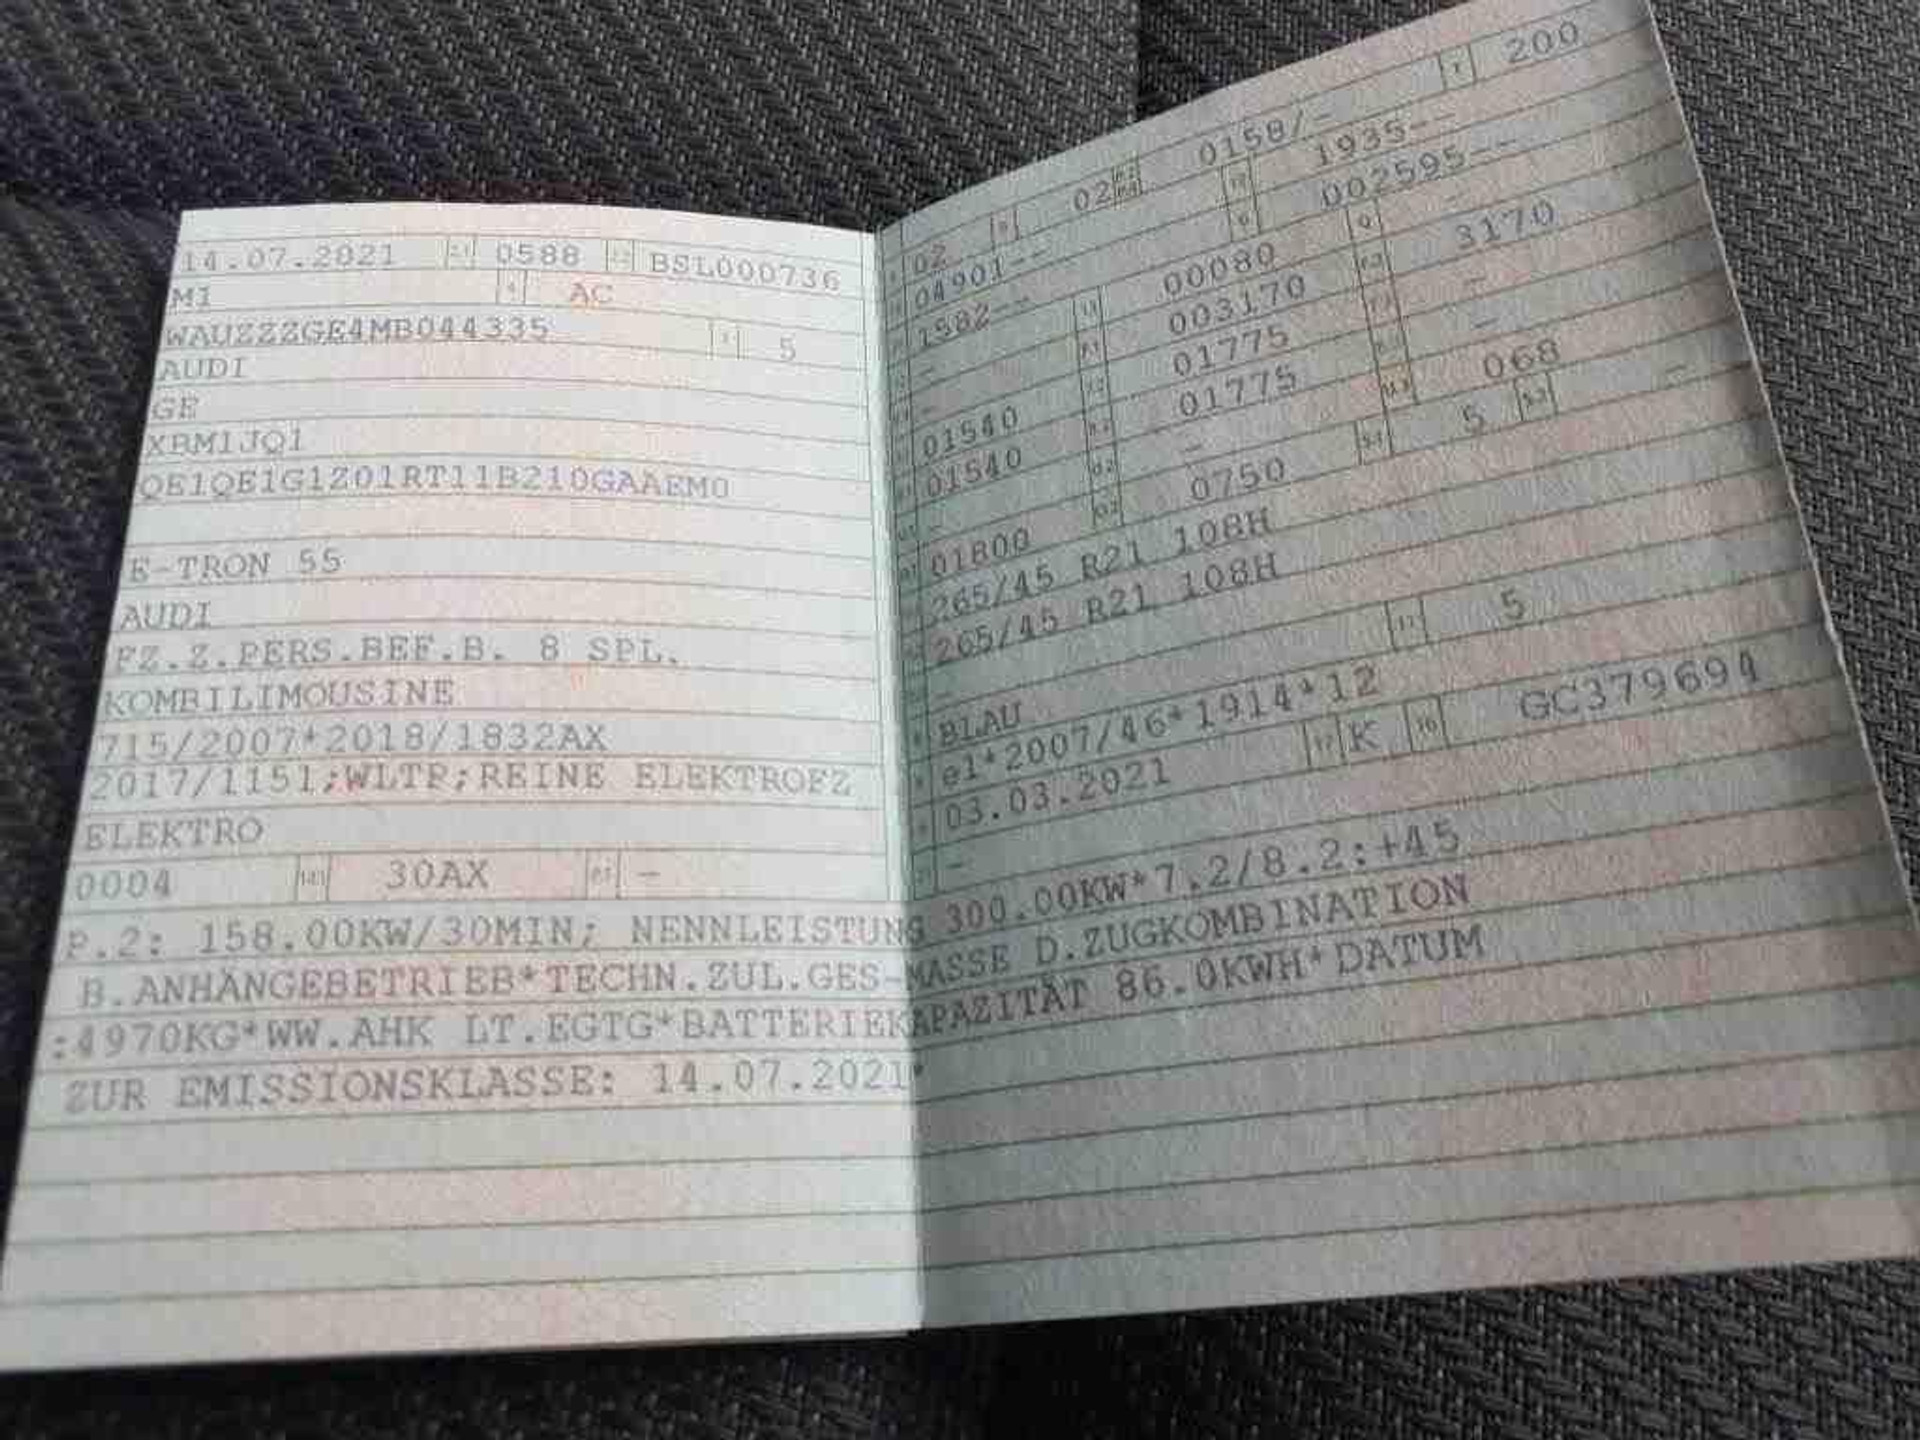 14.07.2021 2.1 0588 2.2 BSL000736
M1 4 AC
WAUZZZGE4MB044335 3 5
AUDI
GE
XBM1JQ1
QE1QE1G1Z01RT11B210GAAEM0
E-TRON 55
AUDI
FZ.Z.PERS.BEF.B. 8 SPL.
KOMBILIMOUSINE
715/2007*2018/1832AX
2017/1151;WLTP;REINE ELEKTROFZ
ELEKTRO
0004 14.1 30AX P.1 -
02 9 02 0158/- T 200
04901-- 19 1935--
1582-- G 002595--
- 13 00080 Q -
- F.1 003170 F.2 3170
01540 7.2 01775 -
01540 8.2 01775 -
- U.2 - U.3 068
01800 O.2 0750 S.1 5 S.2 -
265/45 R21 108H
265/45 R21 108H
-
BLAU 11 5
e1*2007/46*1914*12
03.03.2021 17 K 16 GC379694
-
P.2: 158.00KW/30MIN; NENNLEISTUNG 300.00KW*7.2/8.2:+45
B.ANHÄNGEBETRIEB*TECHN.ZUL.GES-MASSE D.ZUGKOMBINATION
:4970KG*WW.AHK LT.EGTG*BATTERIEKAPAZITÄT 86.0KWH*DATUM
ZUR EMISSIONSKLASSE: 14.07.2021*